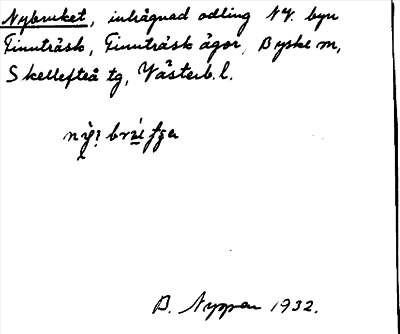 Nybruket, inhägnad odling NV. byn
Finnträsk, Finnträsk ägor, Byske sn,
Skellefteå tg, Västerb. l.
B. Nyman 1932.